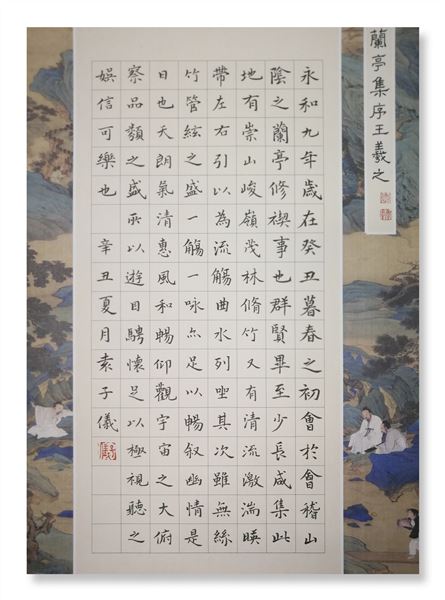 蘭亭集序王羲之
永和九年歲在癸丑暮春之初會於會稽山
陰之蘭亭脩禊事也群賢畢至少長咸集此
地有崇山峻嶺茂林脩竹又有清流激湍暎
帶左右引以為流觴曲水列坐其次雖無絲
竹管絃之盛一觴一咏亦足以暢敘幽情是
日也天朗氣清惠風和暢仰觀宇宙之大俯
察品類之盛所以遊目騁懷足以極視聽之
娛信可樂也 辛丑夏月素子儀